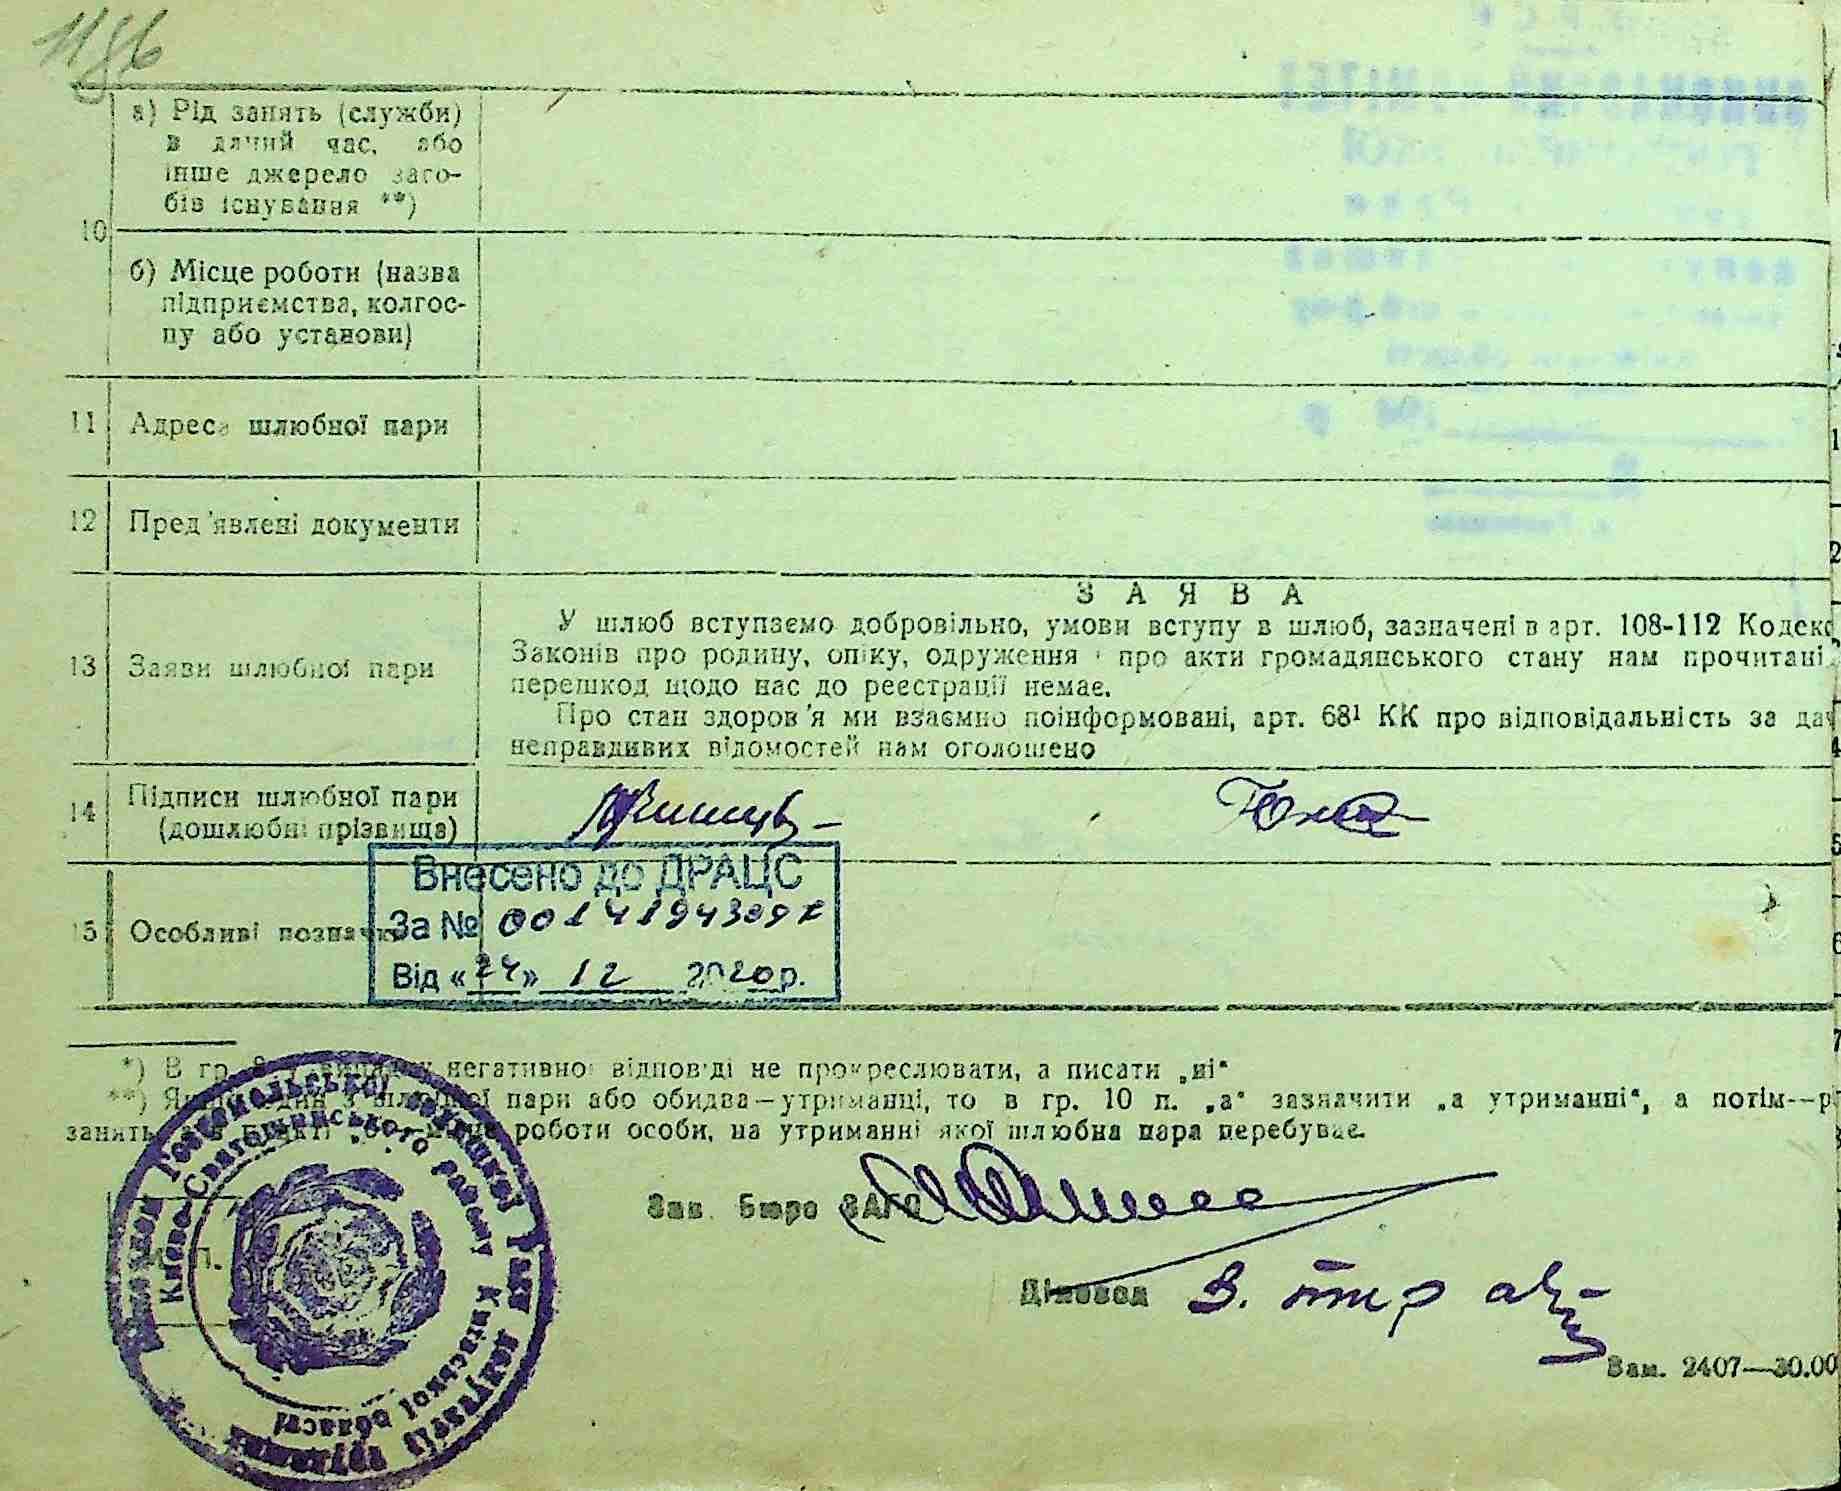 1186
а) Рід занять (служби)
в даний час, або
інше джерело засо-
бів існування **)
10
б) Місце роботи (назва
підприємства, колгос-
пу або установи)
11 Адреса шлюбної пари
12 Пред'явлені документи
ЗАЯВА
У шлюб вступаємо добровільно, умови вступу в шлюб, зазначені в арт. 108-112 Кодекс
Законів про родину, опіку, одруження і про акти громадянського стану нам прочитані,
перешкод щодо нас до реєстрації немає.
13 Заяви шлюбної пари
Про стан здоров'я ми взаємно поінформовані, арт. 68¹ КК про відповідальність за дач
неправдивих відомостей нам оголошено
14 Підписи шлюбної пари
(дошлюбні прізвища)
Внесено до ДРАЦС
За №
15 Особливі позначки
Від «24» 12 2020р.
*) В гр. негативної відповіді не прокреслювати, а писати „ні“
**) пари або обидва—утриманці, то в гр. 10 п. „а“ зазначити „а утриманні“, а потім—р
занять роботи особи, на утриманні якої шлюбна пара перебуває.
Виконком Гостомольської селищної Ради депутатів трудящих
Києво-Святошинського району Київської області
М. П.
Зав. Бюро ЗАГС
Діловод
Зам. 2407—30.00